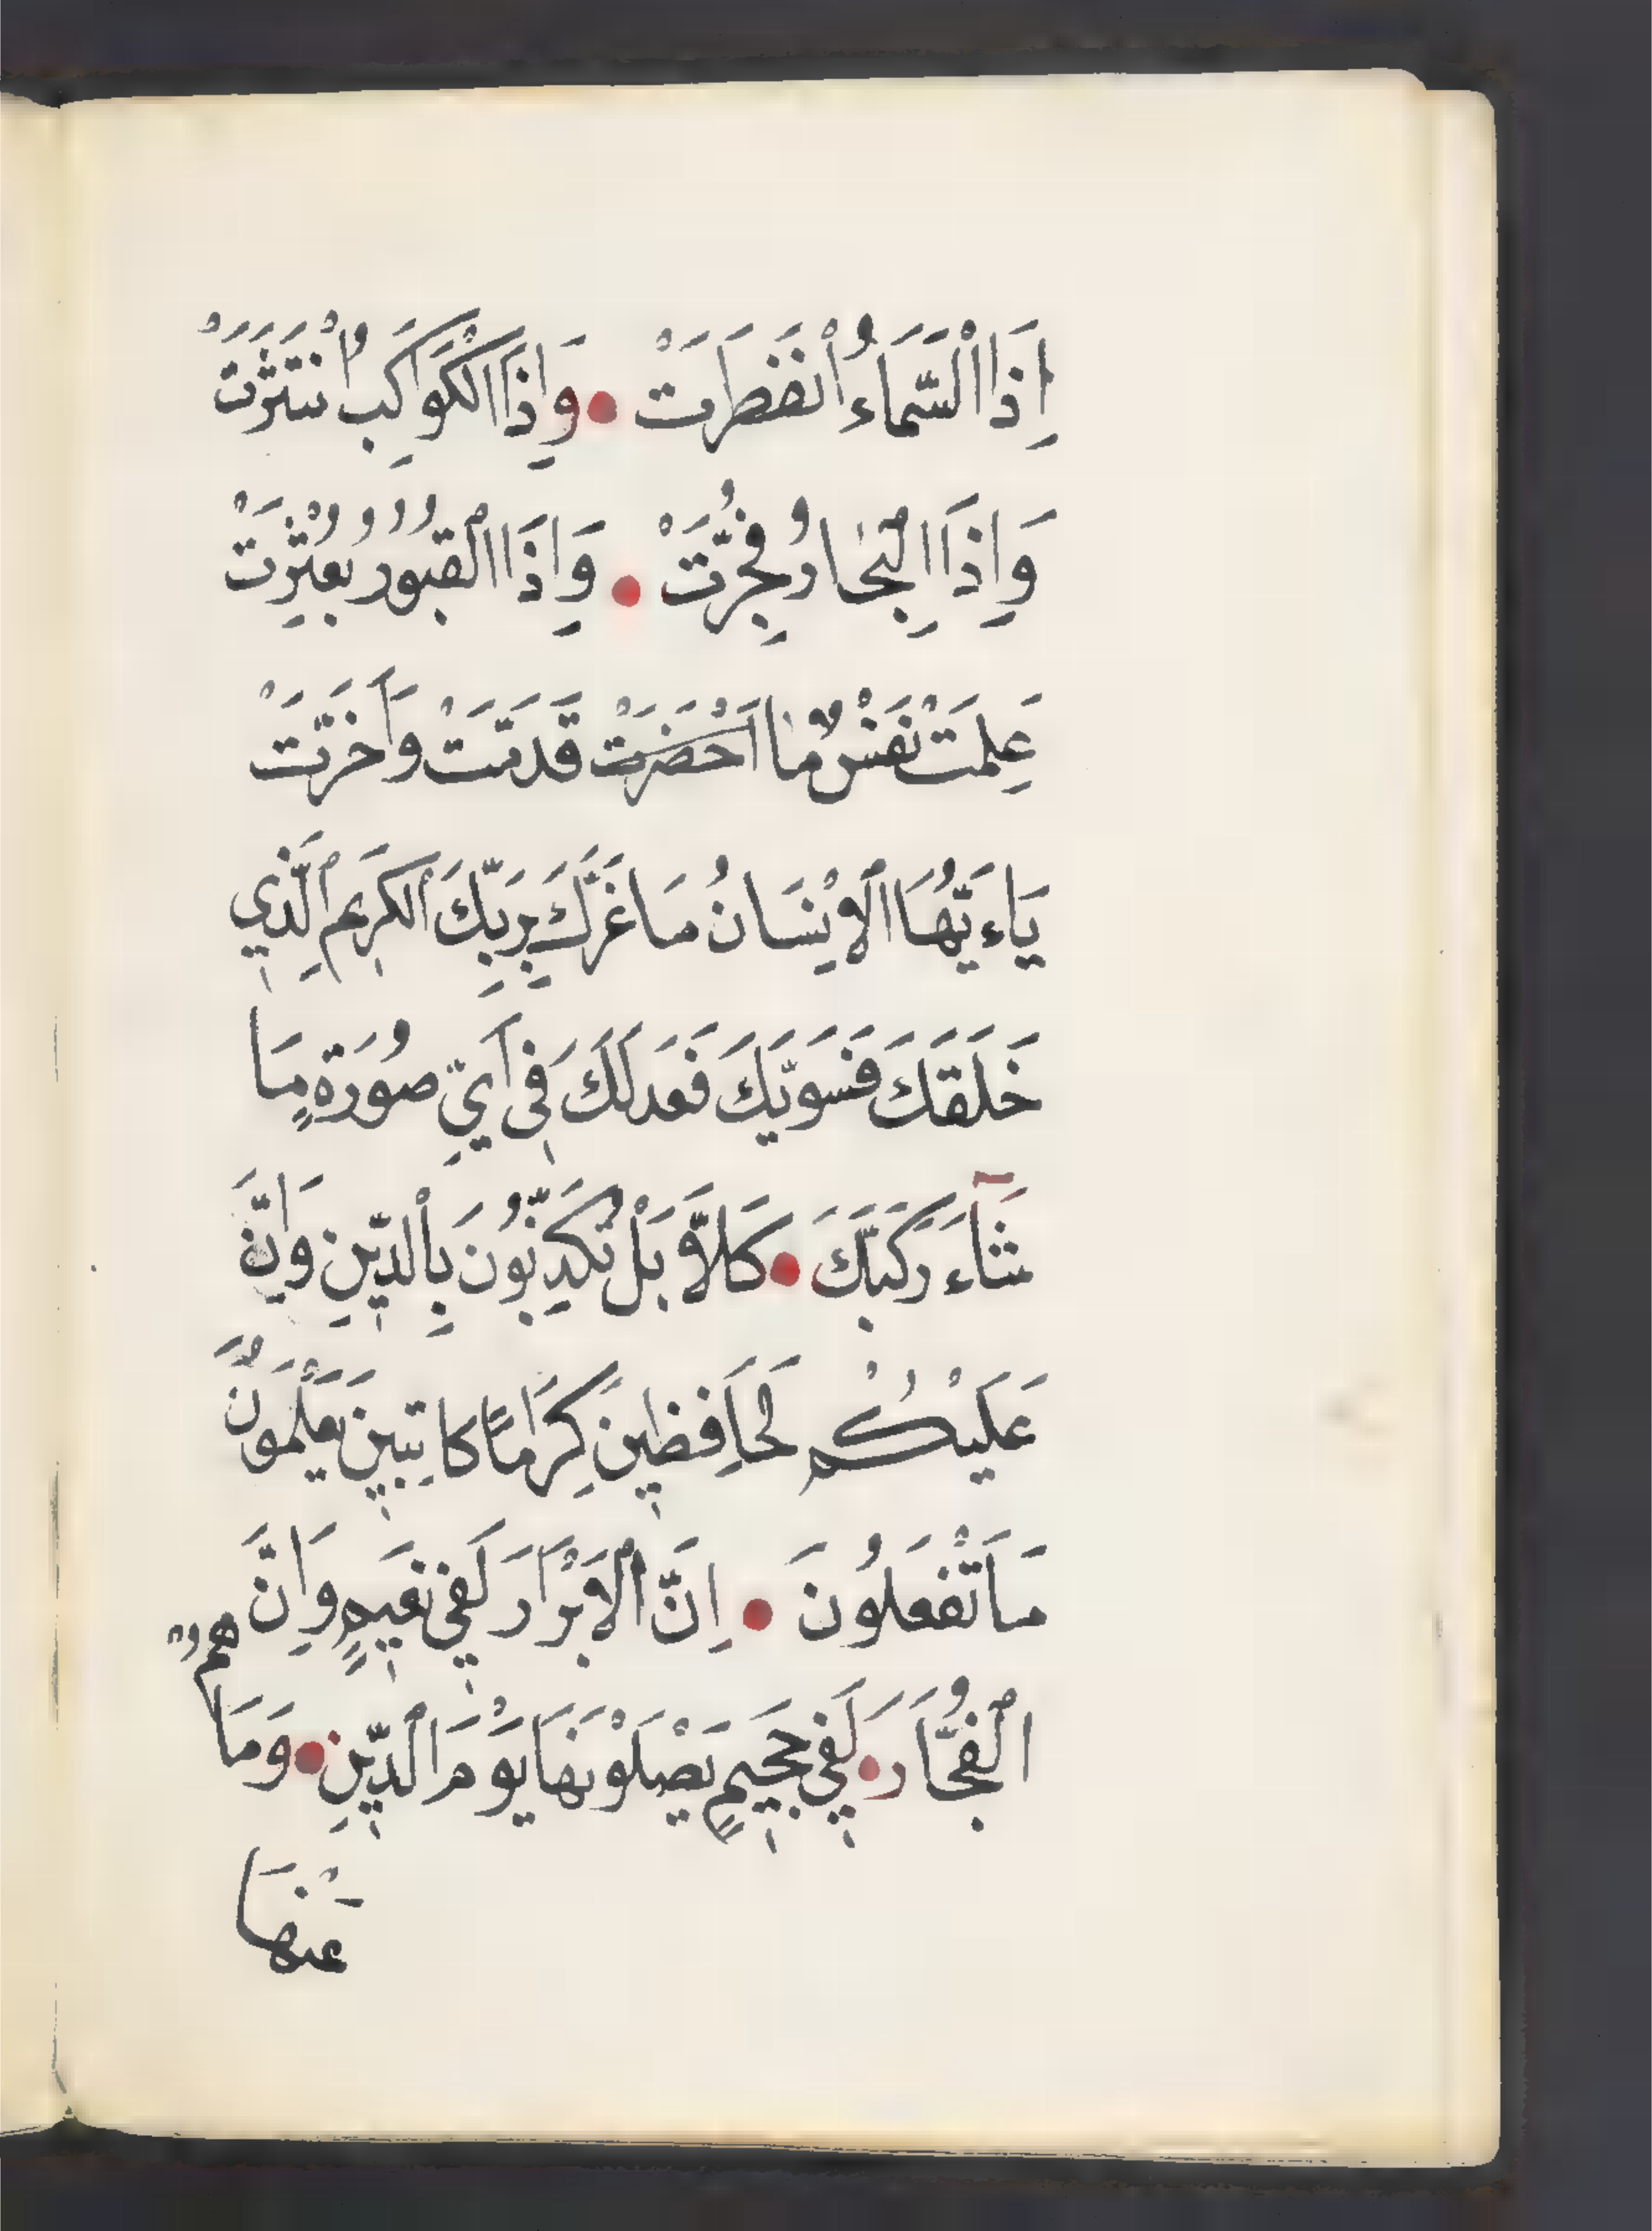 اِذَا اْلسَّمَاءُ اْنفَطَرَتْ • وَاِذَا الْكَوَاكِبُ اْنتَثَرَتْ
وَاِذَا الْبِحَارُ فُجِّرَتْ • وَاِذَا الْقُبُورُ بُعْثِرَتْ
عَلِمَتْ نَفْسٌ مَا اَحْضَرَتْ قَدَّمَتْ وَاَخَّرَتْ
يَاءَيُّهَا الْاِنْسَانُ مَا غَرَّكَ بِرَبِّكَ الْكَرِيمِ الَّذِي
خَلَقَكَ فَسَوَّيكَ فَعَدَلَكَ فِي اَيِّ صُورَةٍ مَا
شَآءَ رَكَّبَكَ • كَلَّا بَلْ تُكَذِّبُونَ بِالدِّينِ وَاِنَّ
عَلَيْكُمْ لَحَافِظِينَ كِرَامًا كَاتِبِينَ يَعْلَمُونَ
مَا تَفْعَلُونَ • اِنَّ الْاَبْرَارَ لَفِي نَعِيمٍ وَاِنَّ
الْفُجَّارَ لَفِي جَحِيمٍ يَصْلَوْنَهَا يَوْمَ الدِّينِ • وَمَا هُمْ
عَنْهَا